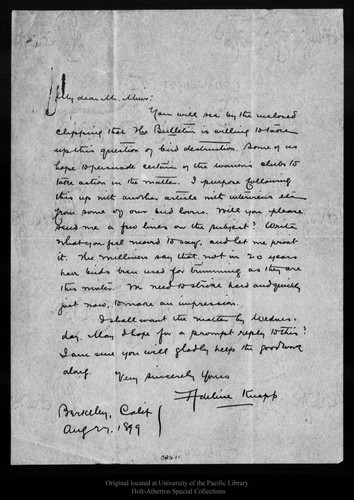 My dear Mr. Muir:
You will see by the inclosed
clipping that The Bulletin is willing to take
up this question of bird destruction. Some of us
hope to persuade certain of the women's clubs to
take action in the matter. I purpose following
this up with another article with interviews
from some of our bird lovers. Will you please
send me a few lines on the subject? Write
what you feel moved to say, and let me print
it. The milliners say that not in 20 years
have birds been used for trimming as they are
this winter. We need to strike hard and quickly
just now, to make an impression.
I shall want the matter by Wednes-
day. May I hope for a prompt reply to this?
I am sure you will gladly help the good work
along.
Very sincerely Yours
Adeline Knapp
Berkeley, Calif
Aug 27, 1899
02611
Original located at University of the Pacific Library
Holt-Atherton Special Collections